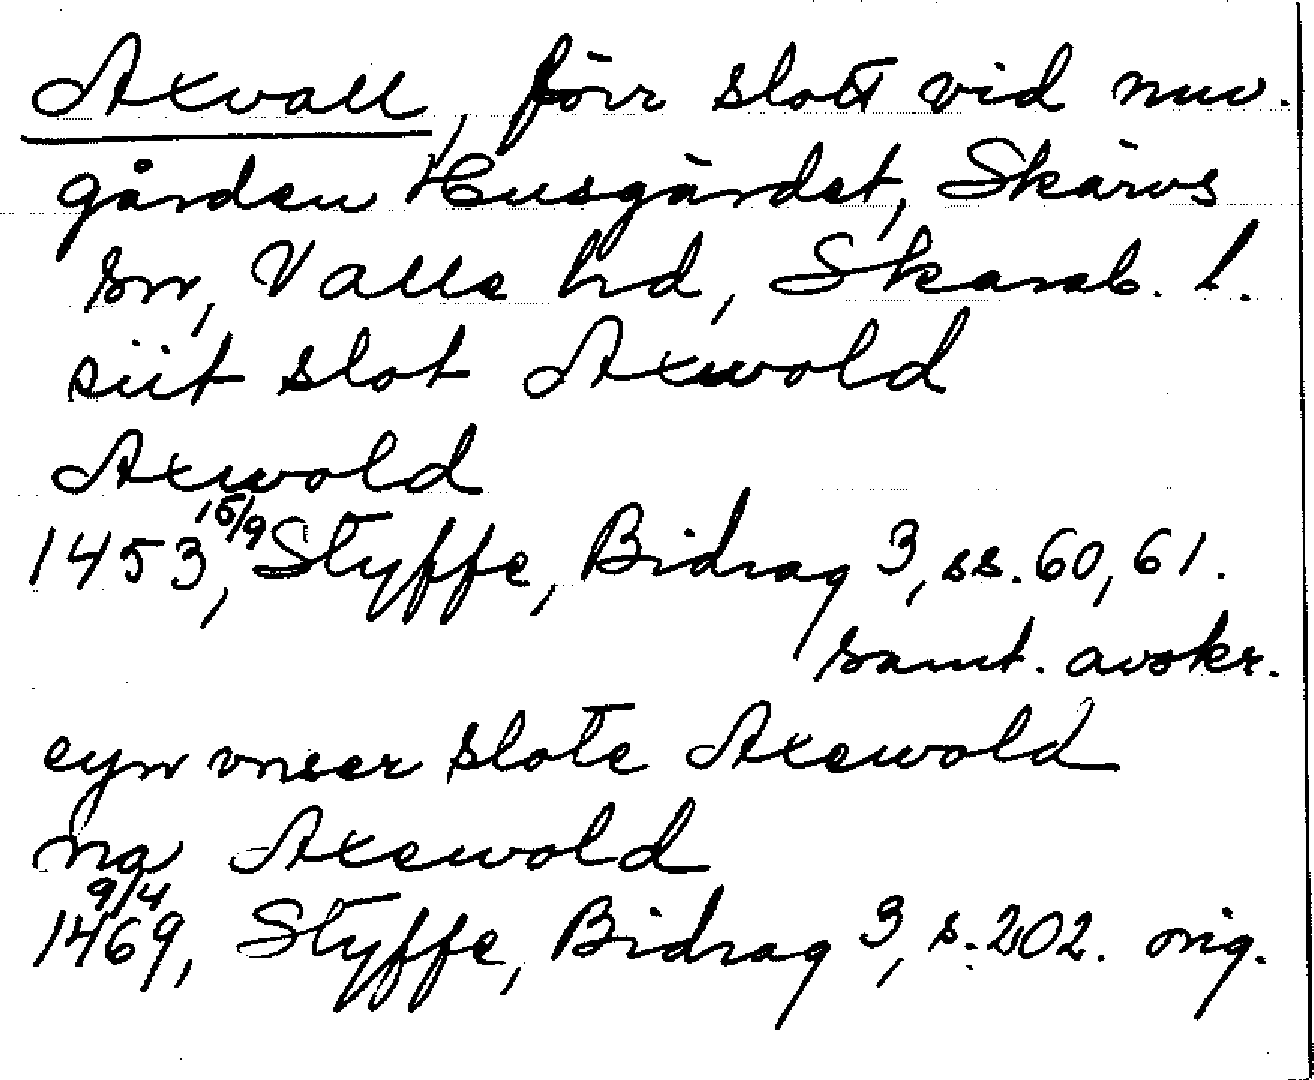 Axvall, förr slott vid nuv.
gården Husgärdet, Skärvs
sn, Valle hd, Skarab. l.
siit slot Axwold
Axwold
1453 15/9, Styffe, Bidrag 3, ss. 60, 61.
samt. avskr.
eyn vnser slote Axewold
na Axewold
1469 9/4, Styffe, Bidrag 3, s. 202. orig.